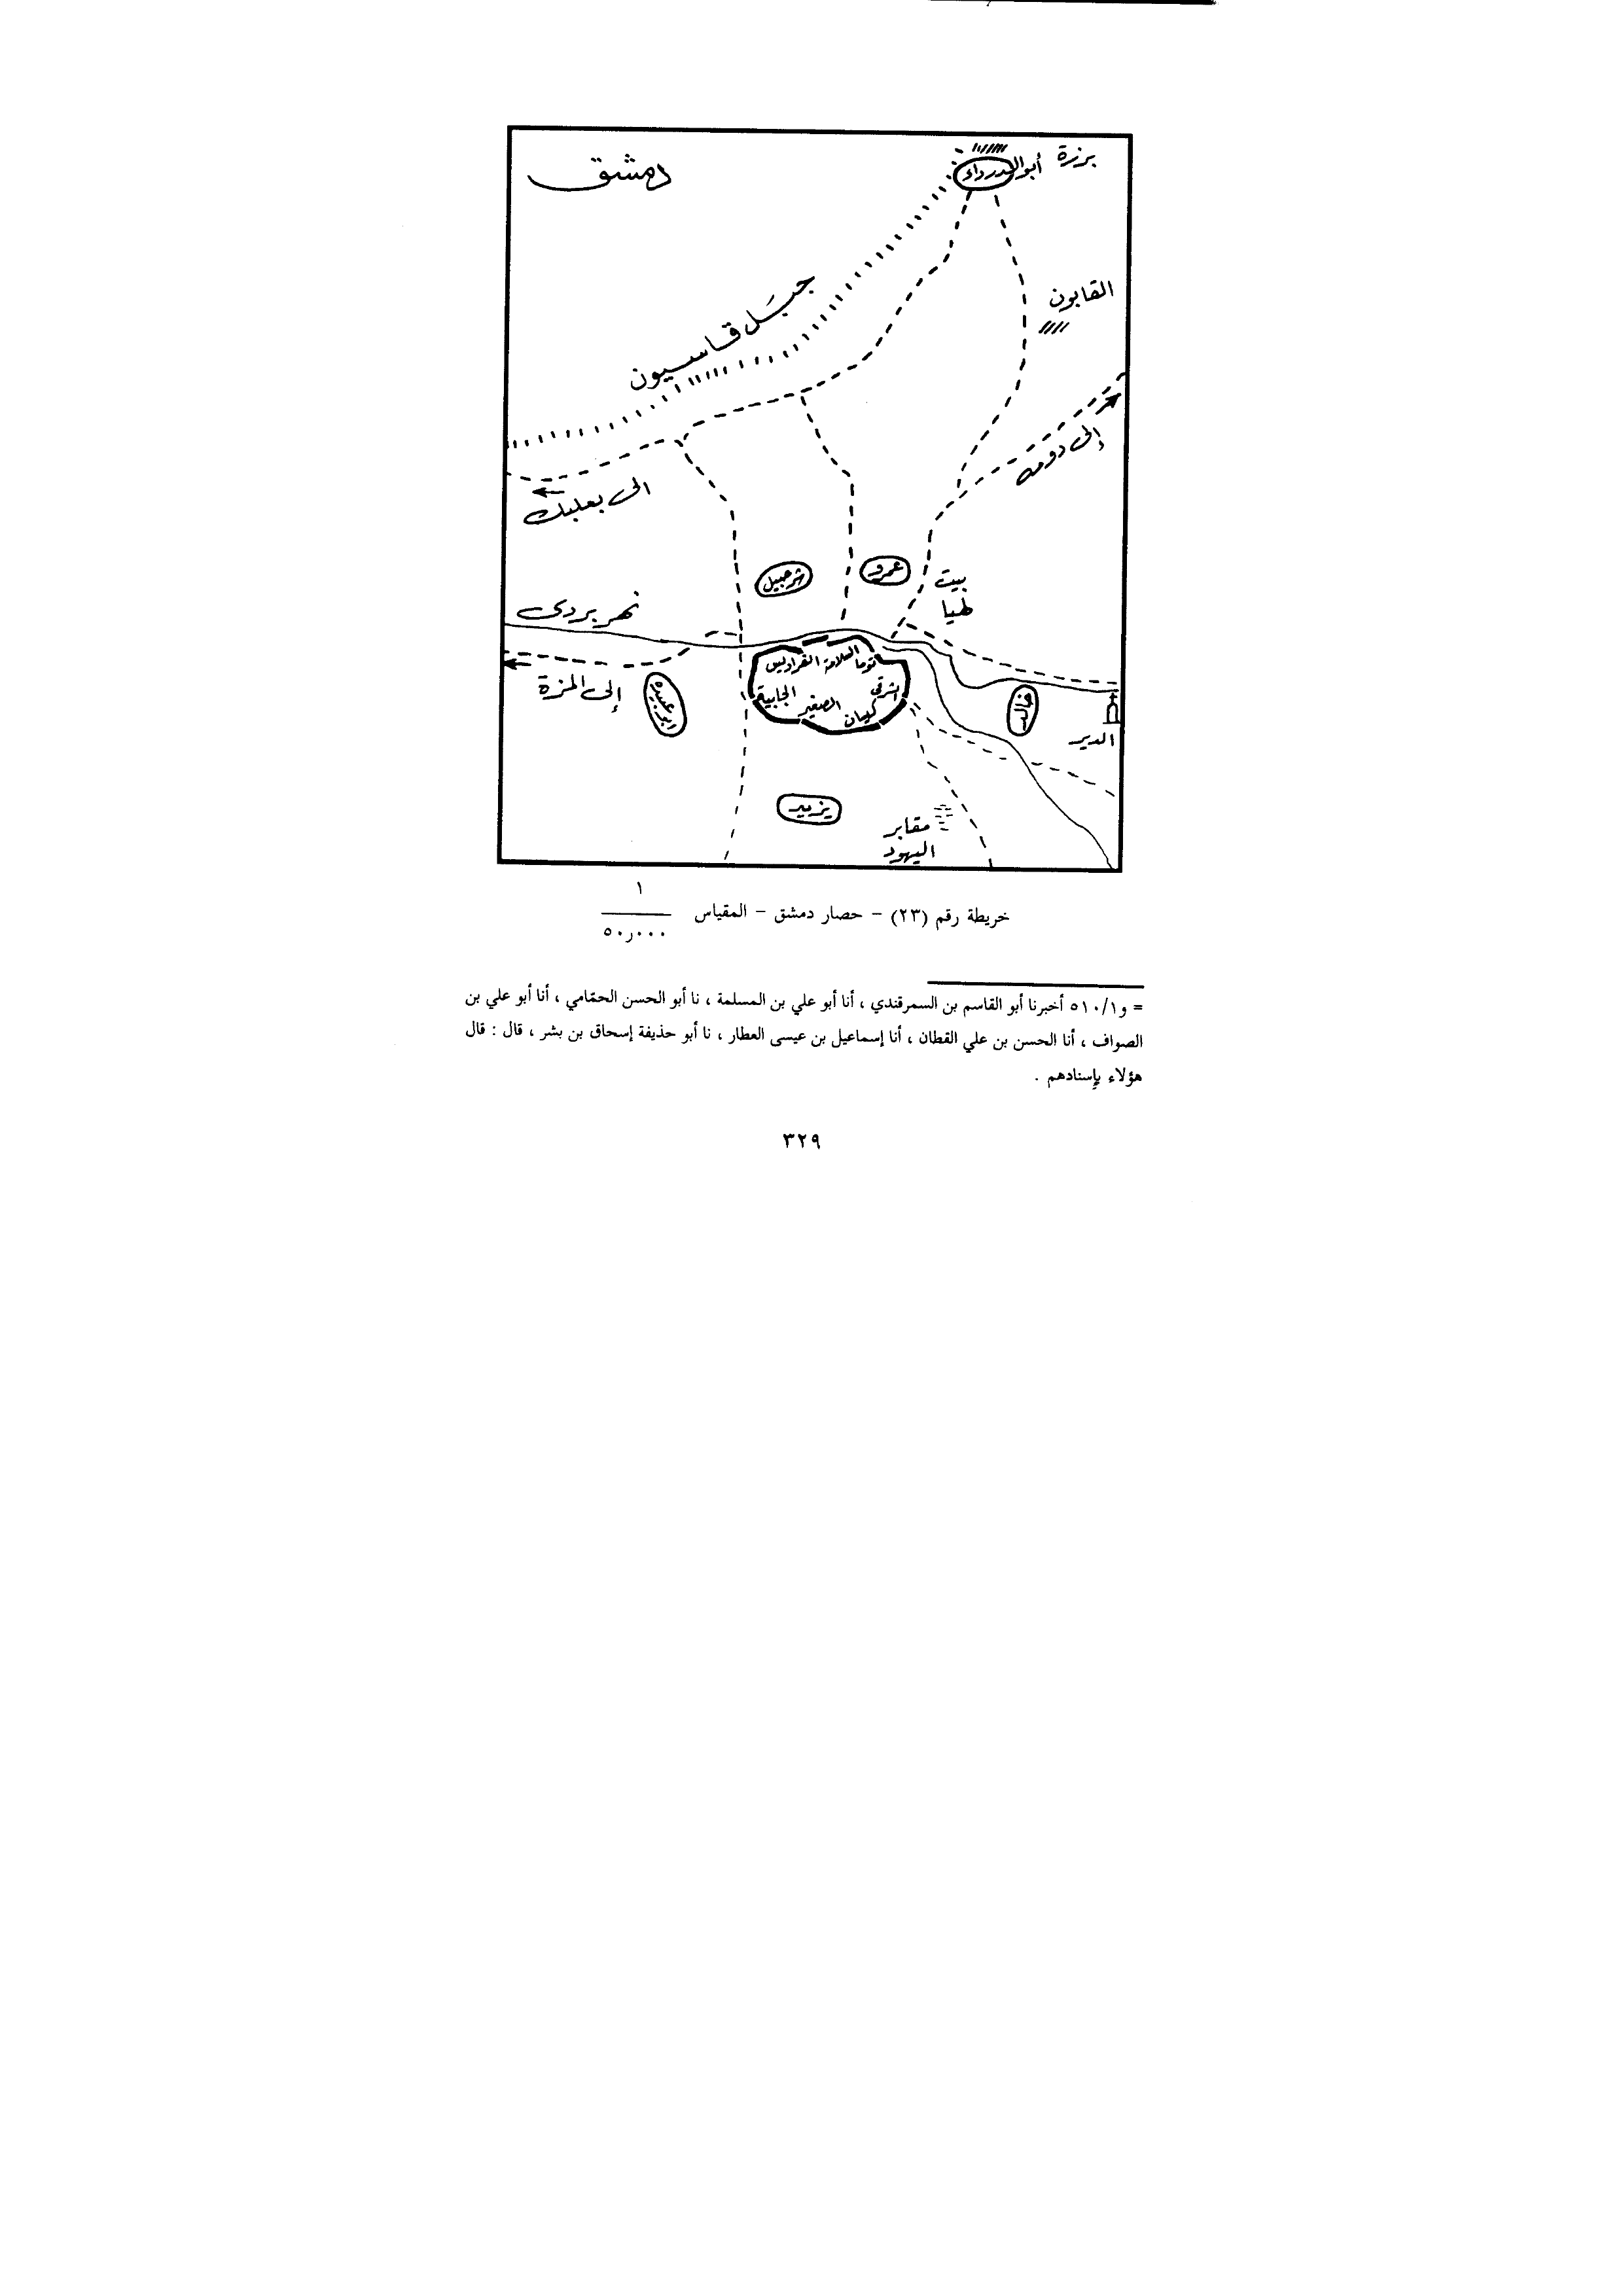 دمشق
برزة
أبو الدرداء
جبل قاسيون
القابون
إلى دومه
الى بعلبك
شرحبيل
عمرو
بيت
لهيا
نهر بردى
إلى المزة
أبو عبيدة
توما
السلامة
الفراديس
الجابية
الصغير
كيسان
الشرقي
خالد
الدير
يزيد
مقابر
اليهود
خريطة رقم (٢٣) - حصار دمشق - المقياس ١
٥٠ر٠٠٠
= و٥١٠/١ أخبرنا أبو القاسم بن السمرقندي ، أنا أبو علي بن المسلمة ، نا أبو الحسن الحمّامي ، أنا أبو علي بن
الصواف ، أنا الحسن بن علي القطان ، أنا إسماعيل بن عيسى العطار ، نا أبو حذيفة إسحاق بن بشر ، قال : قال
هؤلاء بإسنادهم .
٣٢٩